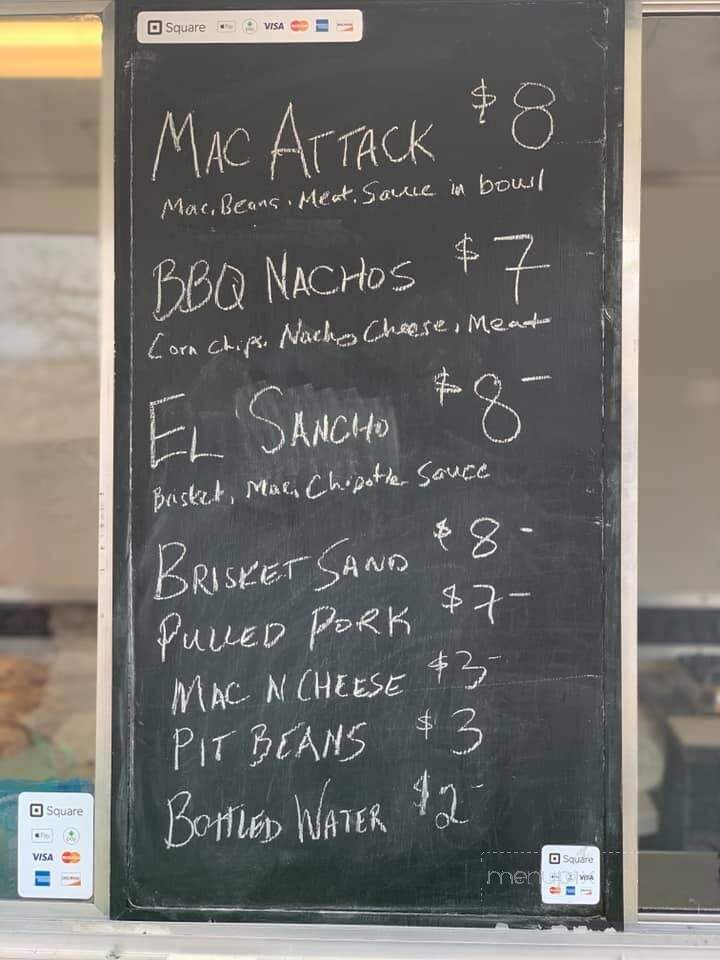 Square Pay VISA
$8
MAC ATTACK
Mac, Beans, Meat, Sauce in bowl
BBQ NACHOS $7
Corn chips, Nacho Cheese, Meat
EL SANCHO $8-
Brisket, Mac, Chipotle Sauce
BRISKET SAND $8-
PULLED PORK $7-
MAC N CHEESE $3-
PIT BEANS $3
BOTTLED WATER $2-
Square
Pay
VISA
Square
VISA